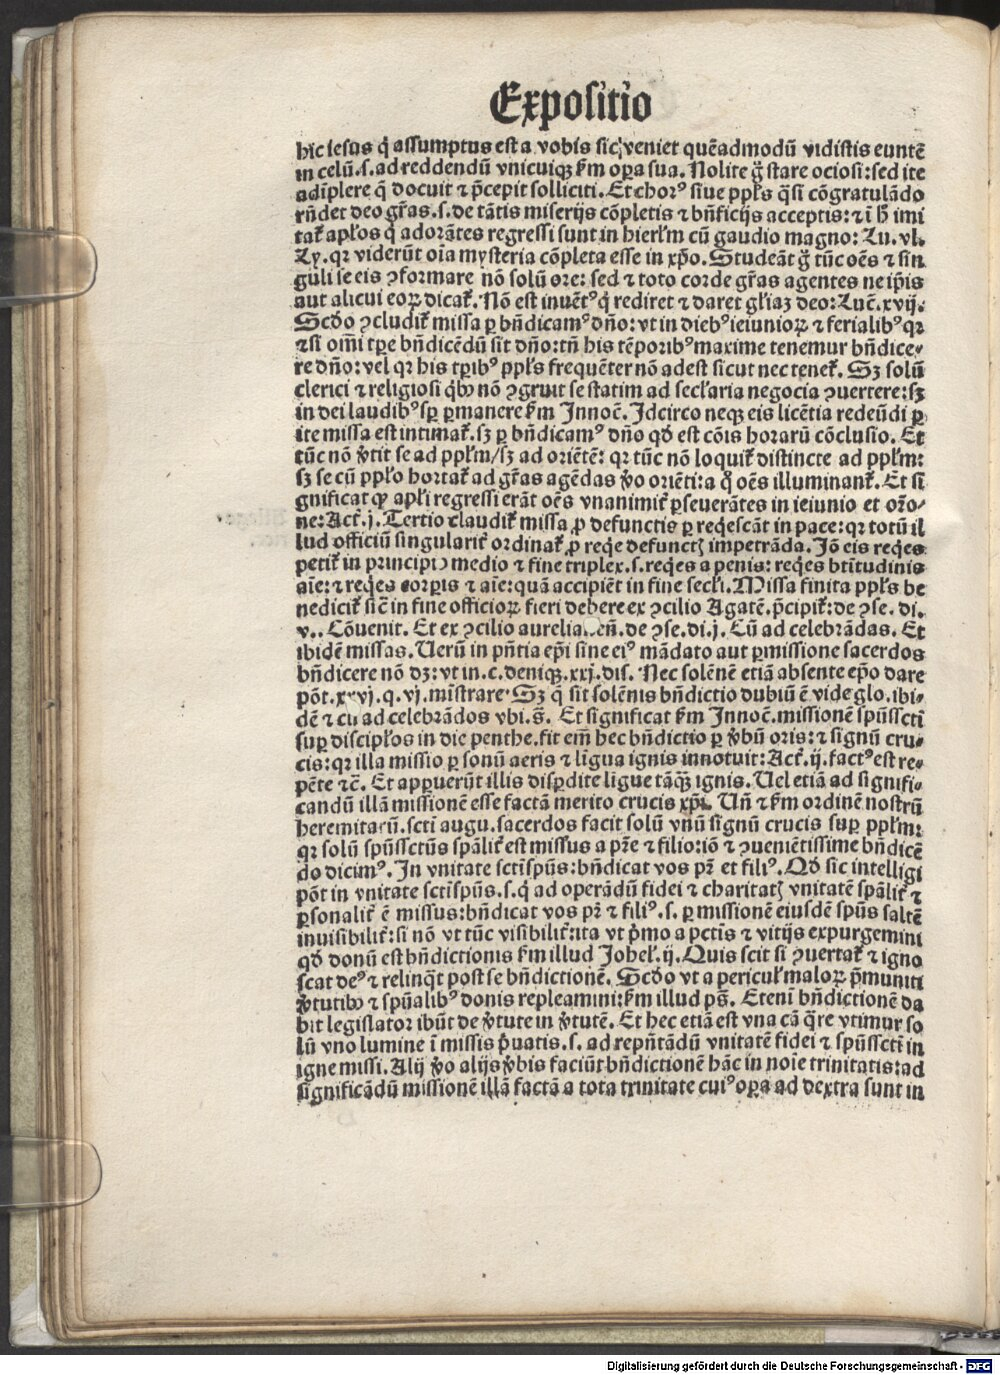 Expositio
hic iesus q̇ assumptus est a vobis sic veniet quēadmodū vidistis euntē
in celū.s.ad reddendū vnicuiqꝫ km̄ oꝑa sua. Nolite g̃ stare ociosi: sed ite
adīplere q̄ docuit ⁊ p̄cepit solliciti. Et choꝰ siue ppl̄s q̄si cōgratulādo
rn̄det deo gr̄as.s.de tātis miserijs cōpletis ⁊ bn̄ficijs acceptis: ⁊ ī h̄ imi
tat̄ apl̄os q̇ adorātes regressi sunt in hierl̄m cū gaudio magno: Lu. vl.
Ly. qꝛ viderūt oīa mysteria cōpleta esse in xp̄o. Studeāt g̃ tūc oēs ⁊ sin
guli se eis ꝯformare nō solū ore: sed ⁊ toto corde gr̄as agentes ne ip̄is
aut alicui eoꝝ dicat̄. Nō est inuētꝰ q̇ rediret ⁊ daret gl̄iaꝫ deo: Luc̄. xvij.
Scd̄o ꝯcludit̄ missa ꝑ bn̄dicamꝰ dn̄o: vt in diebꝰ ieiunioꝝ ⁊ ferialibꝰ qꝛ
⁊ si om̄i tꝑe bn̄dicēdū sit dn̄o: tn̄ his tēporibꝰ maxime tenemur bn̄dice⸗
re dn̄o: vel qꝛ his tꝑibꝰ ppl̄s frequēter nō adest sicut nec tenet̄. Sꝫ solū
clerici ⁊ religiosi qͥbꝰ nō ꝯgruit se statim ad secl̄aria negocia ꝯuertere: sꝫ
in dei laudibꝰ sꝑ ꝑmanere km̄ Innoc̄. Idcirco neqꝫ eis licētia redeūdi ꝑ
ite missa est intimat̄. sꝫ ꝑ bn̄dicamꝰ dn̄o qd̄ est cōis horarū cōclusio. Et
tūc nō v̄tit se ad ppl̄m/sꝫ ad oriētē: qꝛ tūc nō loquit̄ distincte ad ppl̄m:
sꝫ se cū ppl̄o hortat̄ ad gr̄as agēdas v̄o oriēti: a q̊ oēs illuminant̄. Et si
gnificat ꝙ apl̄i regressi erāt oēs vnanimit̄ ꝑseuerātes in ieiunio et or̄o⸗
ne: Act̄. j. Tertio claudit̄ missa ꝓ defunctis ꝑ reqͥescāt in pace: qꝛ totū il
lud officiū singularit̄ ordinat̄ ꝓ reqͥe defunctꝫ impetrāda. Jō eis reqͥes
petit̄ in principio medio ⁊ fine triplex.s.reqͥes a penis: reqͥes bt̄itudinis
aīe: ⁊ reqͥes corꝑis ⁊ aīe: quā accipiēt in fine secl̄i. Missa finita ppl̄s be
nedicit̄ sic̄ in fine officioꝝ fieri debere ex ꝯcilio Agatē. p̄cipit̄: de ꝯse. di.
v.. Cōuenit. Et ex ꝯcilio aurelia.en̄. de ꝯse. di. j. Cū ad celebrādas. Et
ibidē missas. Uerū in pn̄tia ep̄i sine eiꝰ mādato aut ꝑmissione sacerdos
bn̄dicere nō dꝫ: vt in .c. deniqꝫ. xxj. dis. Nec solēnē etiā absente ep̄o dare
pōt. xxvj. q. vj. mīstrare. Sꝫ q̄ sit solēnis bn̄dictio dubiū ē vide glo. ibi⸗
dē ⁊ cū ad celebrādos vbi. s̄. Et significat km̄ Innoc̄. missionē spūssctī
suꝑ discipl̄os in die penthe. fit em̄ hec bn̄dictio ꝑ v̄bū oris: ⁊ signū cru⸗
cis: qꝛ illa missio ꝑ sonū aeris ⁊ ligua ignis innotuit: Act̄. ij. factꝰ est re⸗
pēte ⁊c̄. Et apꝑuerūt illis disꝑdite ligue tāqꝫ ignis. Uel etiā ad signifi⸗
candū illā missionē esse factā merito crucis xp̄i. Un̄ ⁊ km̄ ordinē nostrū
heremitarū. sctī augu. sacerdos facit solū vnū signū crucis suꝑ ppl̄m:
qꝛ solū spūssctūs spālit̄ est missus a pr̄e ⁊ filio: iō ⁊ ꝯueniētissime bn̄dicē
do dicimꝰ. In vnitate sctīspūs: bn̄dicat vos pr̄ et filiꝰ. Qd̄ sic intelligi
pōt in vnitate sctīspūs.s.q̇ ad operādū fidei ⁊ charitatꝫ vnitatē spālit̄ ⁊
ꝑsonalit̄ ē missus: bn̄dicat vos pr̄ ⁊ filiꝰ.s. ꝑ missionē eiusdē spūs saltē
inuisibilit̄: si nō vt tūc visibilit̄: ita vt p̄mo a pctīs ⁊ vitijs expurgemini
qd̄ donū est bn̄dictionis km̄ illud Johel̄. ij. Quis scit si ꝯuertat̄ ⁊ igno
scat deꝰ ⁊ relinqͥt post se bn̄dictionē. Scd̄o vt a pericul̄ maloꝝ p̄muniti
v̄tutibꝰ ⁊ spūalibꝰ donis repleamini: km̄ illud ps̄. Etenī bn̄dictionē da
bit legislator ibūt de v̄tute in v̄tutē. Et hec etiā est vna cā q̄re vtimur so
lū vno lumine ī missis p̄uatis.s. ad repn̄tādū vnitatē fidei ⁊ spūssctī in
igne missi. Alij v̄o alijs v̄bis faciūt bn̄dictionē hāc in noīe trinitatis: ad
significādū missionē illā factā a tota trinitate cuiꝰ oꝑa ad dextra sunt in
Digitalisierung gefördert durch die Deutsche Forschungsgemeinschaft - DFG